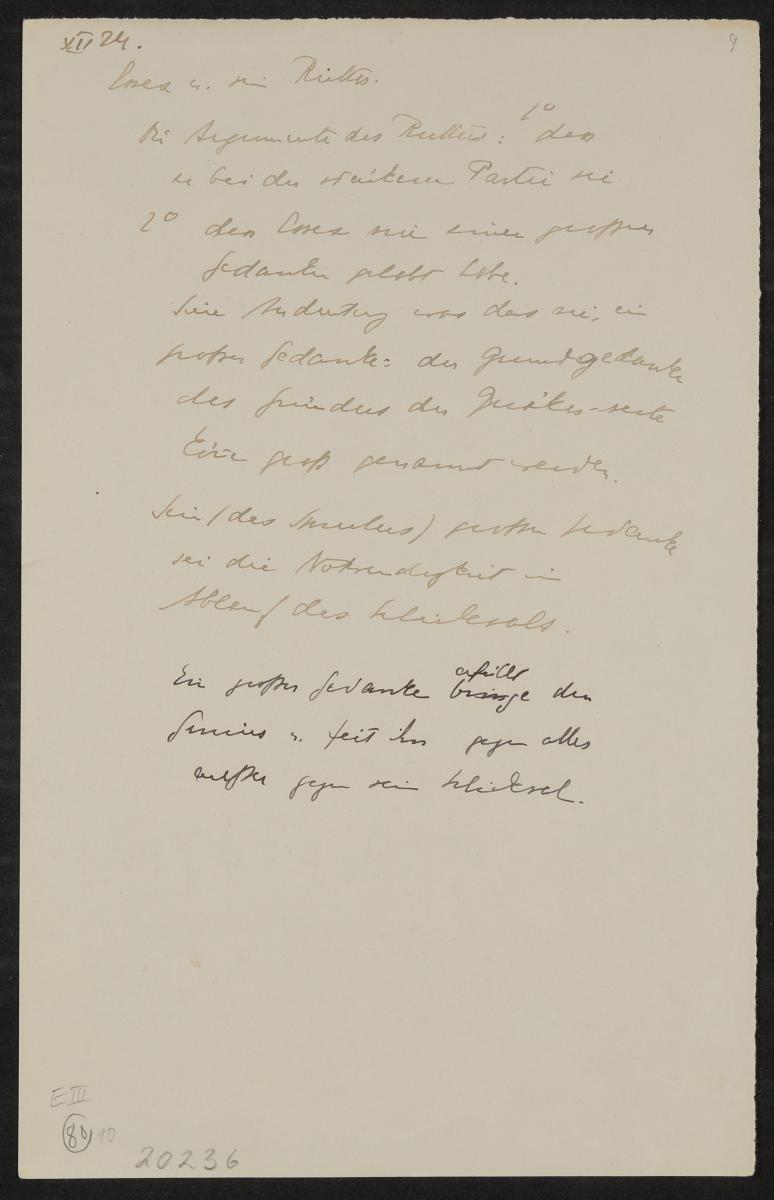 XII 24.
9
Essex u. sein Richter.
Die Argumente des Richters: 1° dass
er bei der stärkeren Partei sei
2° dass Essex nie einen grossen
Gedanken gelebt habe.
Seine Andeutung was das sei, ein
grosser Gedanke: der Grundgedanke
des Gründers der Quäker-secte
könne gross genannt werden.
Sein (des) grosser Gedanke
sei die Notwendigkeit im
Ablauf des Schicksals.
Ein grosser Gedanke erfüllt
den
Genius u. feit ihn gegen alles
ausser gegen sein Schicksal.
E III
80
20236